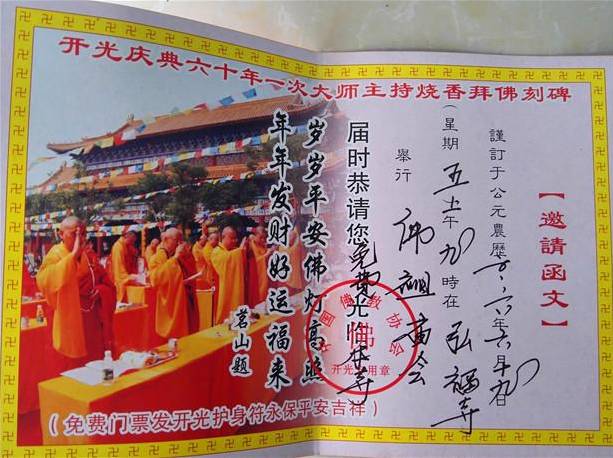 开光庆典六十年一次大师主持烧香拜佛刻碑
【邀請函文】
謹訂于公元農歷二〇一六年六月九日
(星期五上午九時在弘福寺
舉行佛祖廟会
届时恭请您免费光临本寺
岁岁平安佛灯高照
年年发财好运福来
茗山题
中国佛教协会
开光专用章
(免费门票发开光护身符永保平安吉祥)